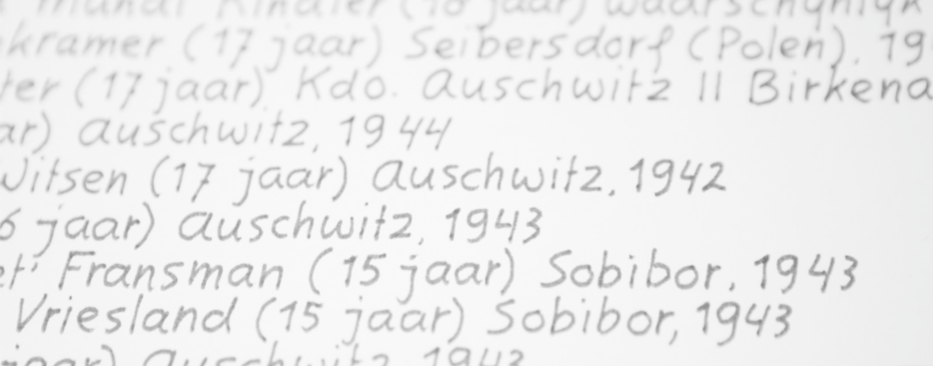 Kindler (16 jaar) waarschijnlijk
kramer (17 jaar) Seibersdorf (Polen), 19
ter (17 jaar) Kdo. Auschwitz II Birkena
ar) Auschwitz, 1944
Witsen (17 jaar) Auschwitz, 1942
6 jaar) Auschwitz, 1943
et' Fransman (15 jaar) Sobibor, 1943
Vriesland (15 jaar) Sobibor, 1943
jaar) Auschwitz, 1943